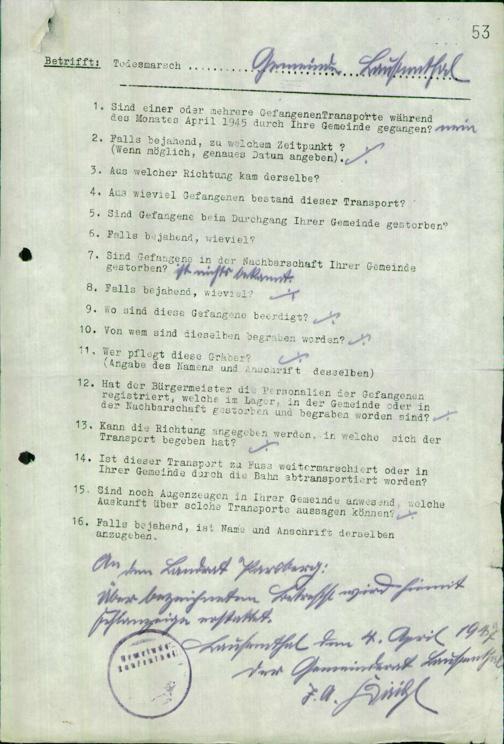 53
Betrifft: Todesmarsch .......... Gemeinde Laufenthal
1. Sind einer oder mehrere GefangenenTransporte während
des Monates April 1945 durch Ihre Gemeinde gegangen? nein
2. Falls bejahend, zu welchem Zeitpunkt ?
(Wenn möglich, genaues Datum angeben).
3. Aus welcher Richtung kam derselbe?
4. Aus wieviel Gefangenen bestand dieser Transport?
5. Sind Gefangene beim Durchgang Ihrer Gemeinde gestorben?
6. Falls bejahend, wieviel?
7. Sind Gefangene in der Nachbarschaft Ihrer Gemeinde
gestorben? ist nichts bekannt.
8. Falls bejahend, wieviel?
9. Wo sind diese Gefangene beerdigt?
10. Von wem sind dieselben begraben worden?
11. Wer pflegt diese Gräber?
(Angabe des Namens und Anschrift desselben)
12. Hat der Bürgermeister die Personalien der Gefangenen
registriert, welche im Lager, in der Gemeinde oder in
der Nachbarschaft gestorben und begraben worden sind?
13. Kann die Richtung angegeben werden, in welche sich der
Transport begeben hat?
14. Ist dieser Transport zu Fuss weitermarschiert oder in
Ihrer Gemeinde durch die Bahn abtransportiert worden?
15. Sind noch Augenzeugen in Ihrer Gemeinde anwesend, welche
Auskunft über solche Transporte aussagen können?
16. Falls bejahend, ist Name und Anschrift derselben
anzugeben.
An den Landrat Parsberg:
Über bezeichneten Betreff wird hiemit
Fehlanzeige erstattet.
Laufenthal den 4. April 1947
Der Gemeinderat Laufenthal
Gemeinde
Laufenthal